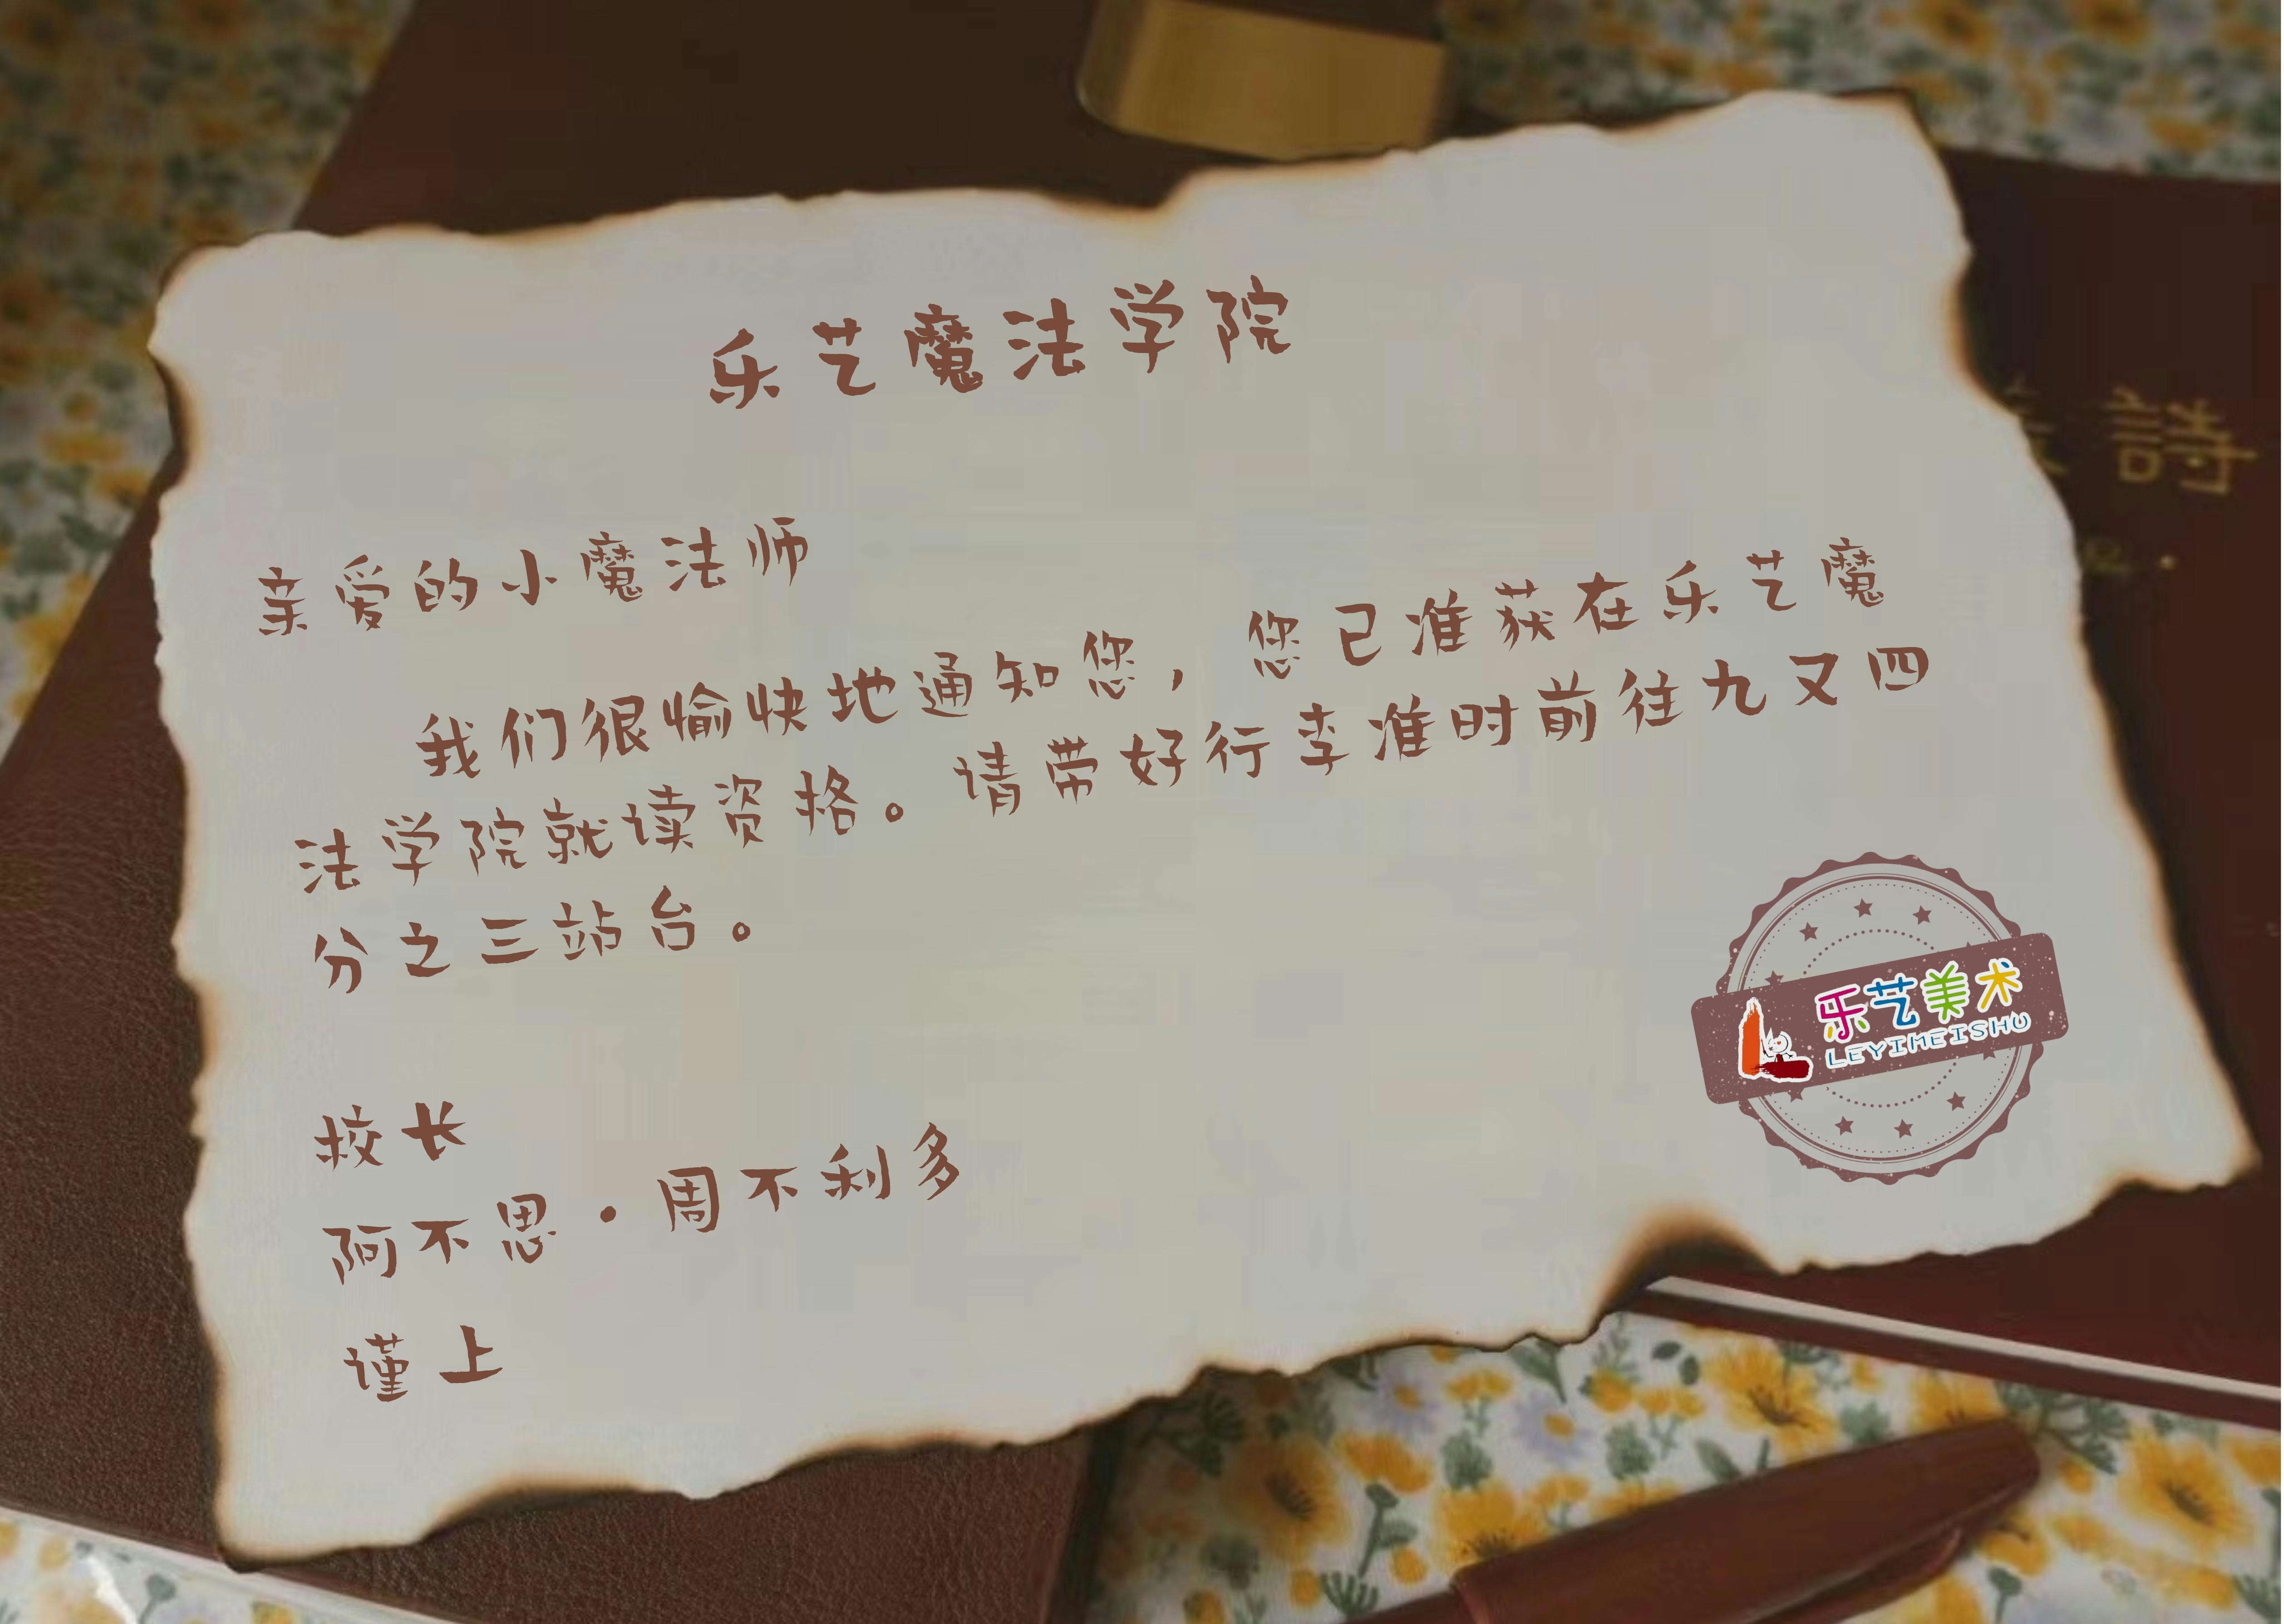 乐艺魔法学院
亲爱的小魔法师
我们很愉快地通知您，您已准获在乐艺魔
法学院就读资格。请带好行李准时前往九又四
分之三站台。
校长
阿不思·周不利多
谨上
乐艺美术
LEYIMEISHU
詩